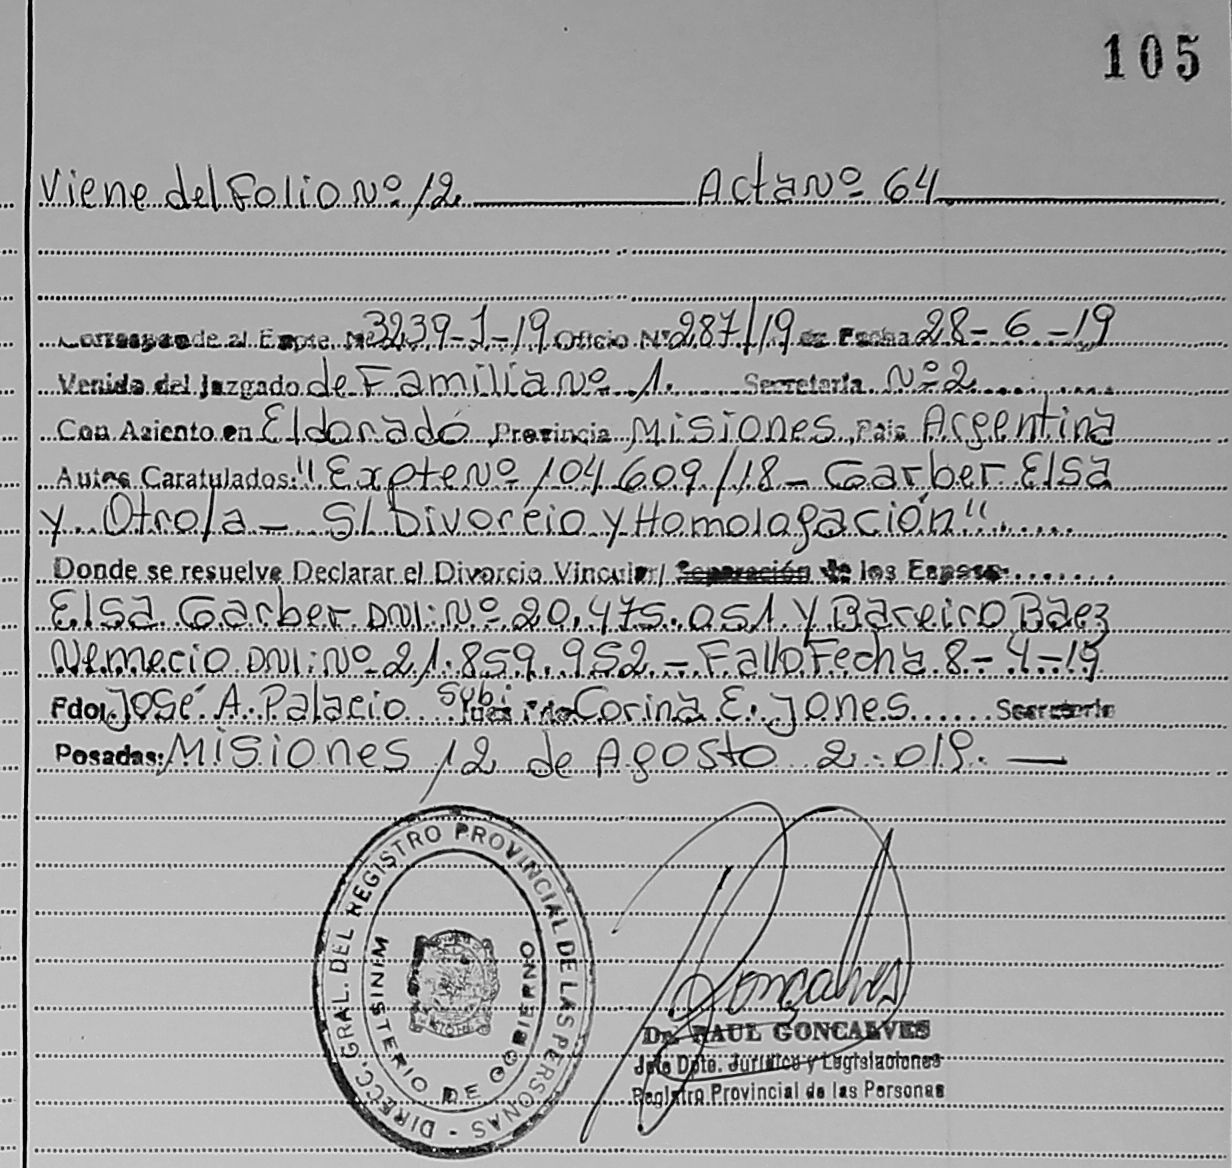 105
Viene del Folio Nº 12 Acta Nº 64
Corresponde al Expte. Nº 3239-1-19 Oficio Nº 287/19 de Fecha 28-6-19
Venida del Juzgado de Familia Nº 1. Secretaría Nº 2
Con Asiento en Eldorado Provincia Misiones País Argentina
Autos Caratulados: "Expte Nº 104.609/18 - Garber Elsa
y Otro/a - S/ Divorcio y Homologación"
Donde se resuelve Declarar el Divorcio Vincular/ Separación de los Esposos
Elsa Garber DNI: Nº 20.475.051 y Bareiro Baez
Nemecio DNI: Nº 21.859.952 - Fallo Fecha 8-4-19
Fdo. José A. Palacio Corina E. Jones Secretario
Posadas: Misiones 12 de Agosto 2.019.
DIRECC. GRAL. DEL REGISTRO PROVINCIAL DE LAS PERSONAS -
MINISTERIO DE GOBIERNO
Goncalves
Dr. RAUL GONCALVES
Jefe Dpto. Jurídico y Legislaciones
Registro Provincial de las Personas